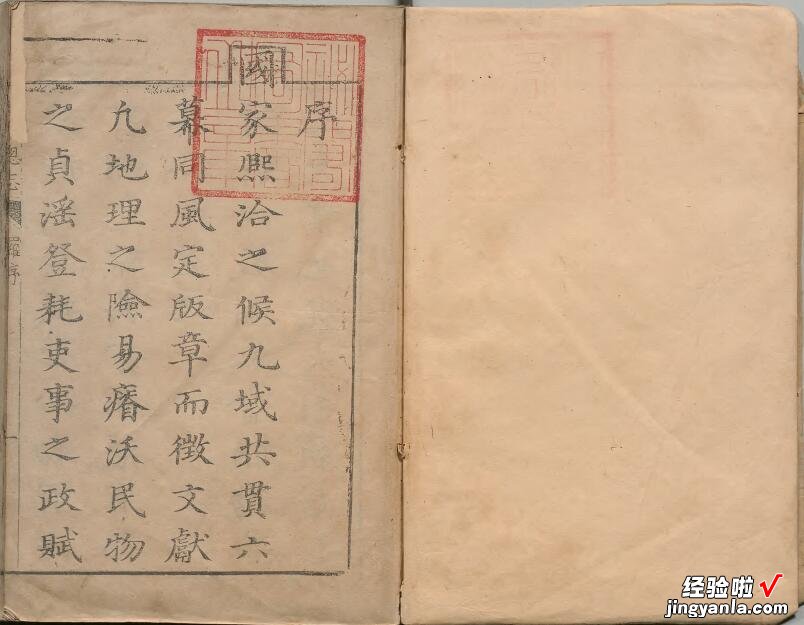 序
國家熈洽之候九域共貫六
幕同風定版章而徵文獻
凢地理之險易瘠沃民物
之貞滛登耗吏事之政賦
羅序
经验啦√
jingyanla.com